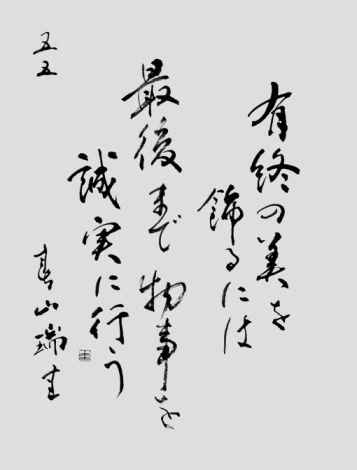 有終の美を
飾るには
最後まで物事を
誠実に行う
五五
青山瑞圭